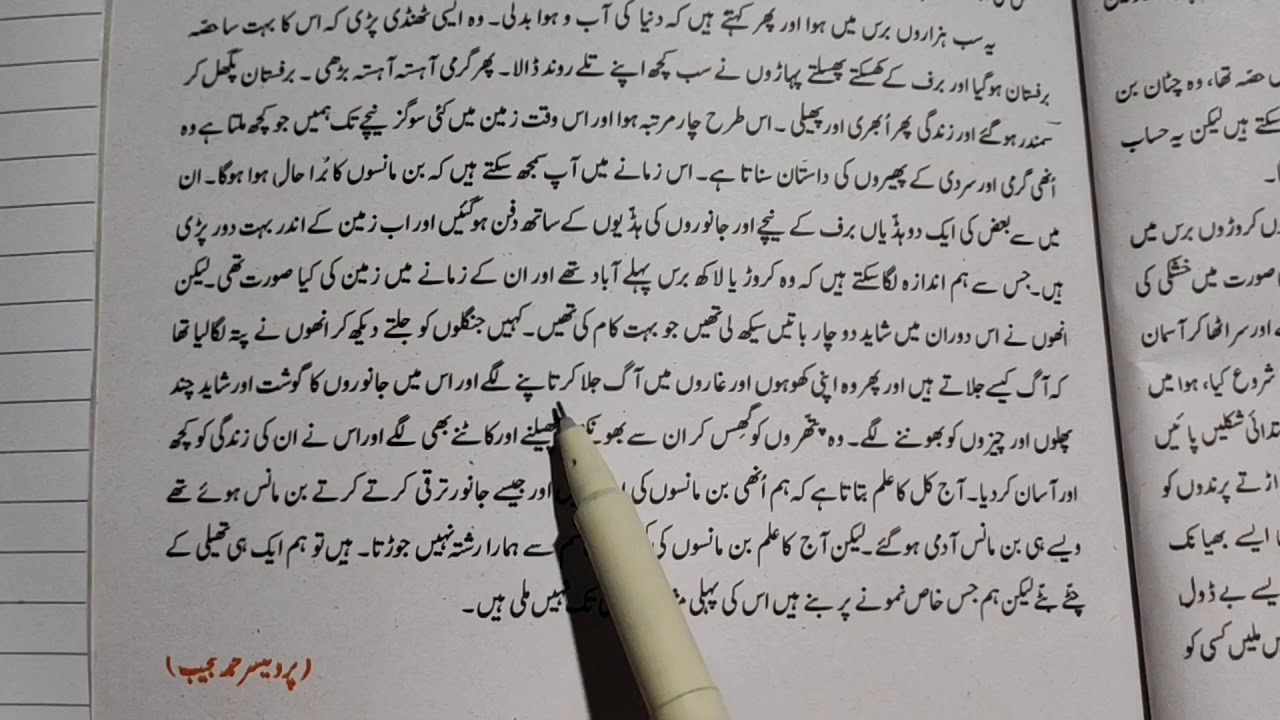 یہ سب ہزاروں برس میں ہوا اور پھر کہتے ہیں کہ دنیا کی آب و ہوا بدلی۔ وہ ایسی ٹھنڈی پڑی کہ اس کا بہت سا حصّہ
برفستان ہوگیا اور برف کے کھسکتے پھسلتے پہاڑوں نے سب کچھ اپنے تلے روند ڈالا۔ پھر گرمی آہستہ آہستہ بڑھی۔ برفستان پگھل کر
سمندر ہوگئے اور زندگی پھر اُبھری اور پھیلی۔ اس طرح چار مرتبہ ہوا اور اس وقت زمین میں کئی سوگز نیچے تک ہمیں جو کچھ ملتا ہے وہ
اُنھی گرمی اور سردی کے پھیروں کی داستان سناتا ہے۔ اس زمانے میں آپ سمجھ سکتے ہیں کہ بن مانسوں کا بُرا حال ہوا ہوگا۔ ان
میں سے بعض کی ایک دو ہڈّیاں برف کے نیچے اور جانوروں کی ہڈّیوں کے ساتھ دفن ہوگئیں اور اب زمین کے اندر بہت دور پڑی
ہیں۔ جس سے ہم اندازہ لگا سکتے ہیں کہ وہ کروڑ یا لاکھ برس پہلے آباد تھے اور ان کے زمانے میں زمین کی کیا صورت تھی۔ لیکن
انھوں نے اس دوران میں شاید دو چار باتیں سیکھ لی تھیں جو بہت کام کی تھیں۔ کہیں جنگلوں کو جلتے دیکھ کر انھوں نے پتہ لگا لیا تھا
کہ آگ کیسے جلاتے ہیں اور پھر وہ اپنی کھوہوں اور غاروں میں آگ جلا کر تاپنے لگے اور اس میں جانوروں کا گوشت اور شاید چند
پھلوں اور چیزوں کو بھوننے لگے۔ وہ پتّھروں کو گھِس کر ان سے چھیلنے اور کاٹنے بھی لگے اور اس نے ان کی زندگی کو کچھ
اور آسان کردیا۔ آج کل کا علم بتاتا ہے کہ ہم اُنھی بن مانسوں کی اور جیسے جانور ترقی کرتے کرتے بن مانس ہوئے تھے
ویسے ہی بن مانس آدمی ہوگئے۔ لیکن آج کا علم بن مانسوں کی سے ہمارا رشتہ نہیں جوڑتا۔ ہیں تو ہم ایک ہی تھیلی کے
چٹّے بٹّے لیکن ہم جس خاص نمونے پر بنے ہیں اس کی پہلی تک نہیں ملی ہیں۔
(پروفیسر محمد مجیب)
حصّہ تھا، وہ چٹان بن
سکتے ہیں لیکن یہ حساب
کروڑوں برس میں
صورت میں خشکی کی
اور سر اٹھا کر آسمان
شروع کیا، ہوا میں
شکلیں پائیں
اڑتے پرندوں کو
ایسے بھیانک
ایسے بے ڈول
ملیں کسی کو